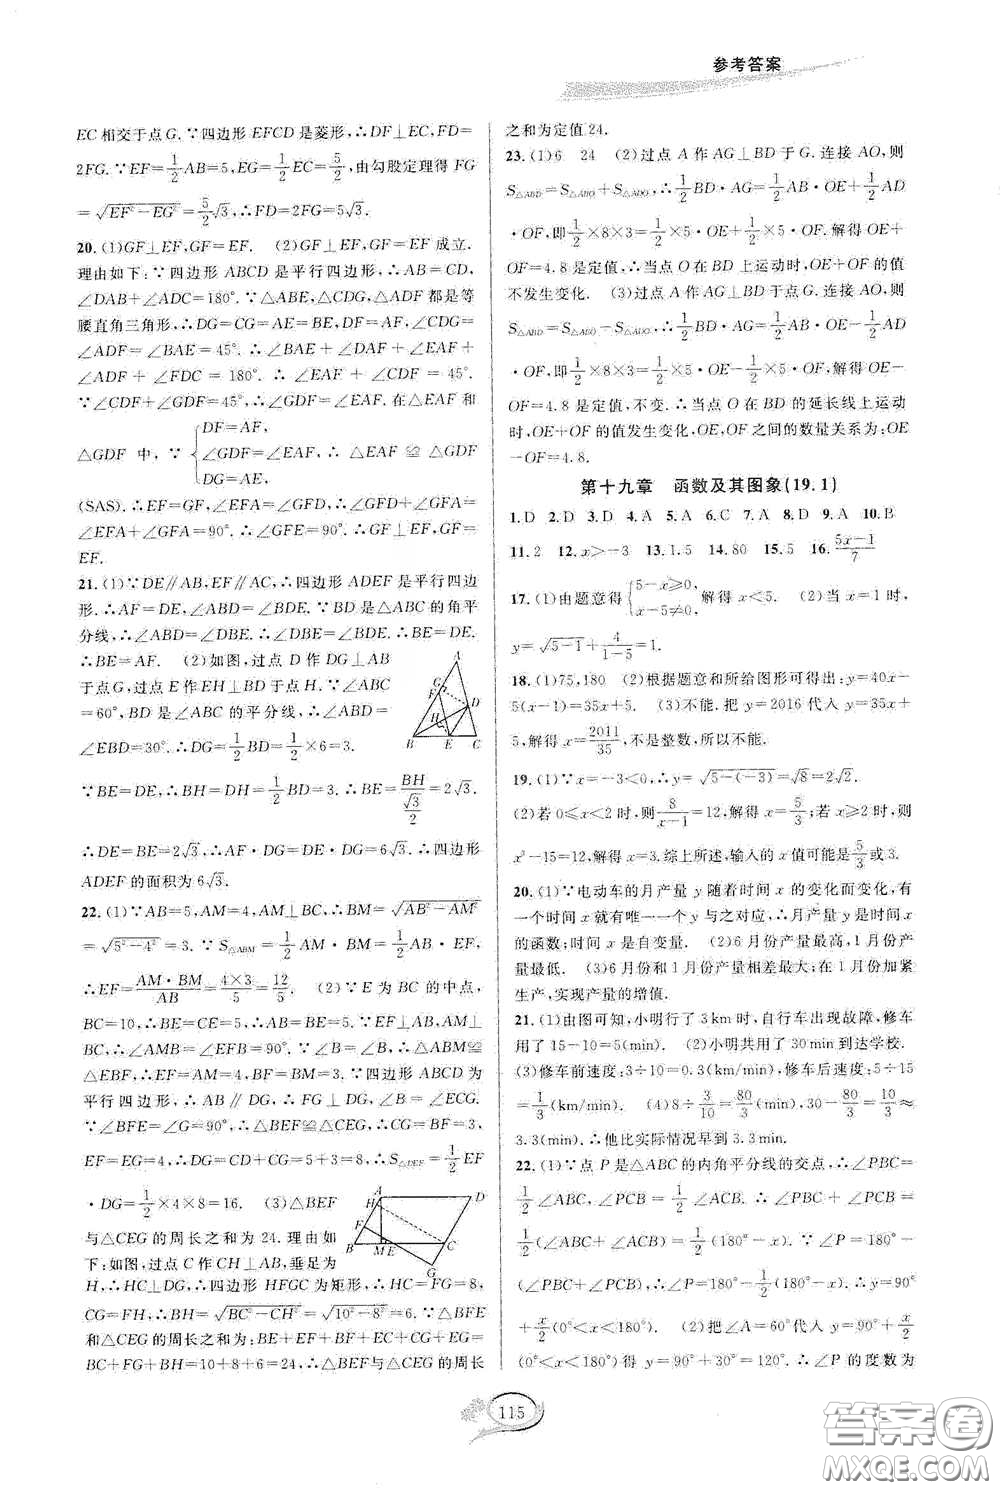 参考答案
EC相交于点G.∵四边形EFCD是菱形,∴DF⊥EC,FD=
2FG.∵EF=1/2AB=5,EG=1/2EC=5/2,由勾股定理得FG
=√(EF²-EG²)=5/2√3,∴FD=2FG=5√3.
20.(1)GF⊥EF,GF=EF. (2)GF⊥EF,GF=EF成立.
理由如下:∵四边形ABCD是平行四边形,∴AB=CD,
∠DAB+∠ADC=180°.∵△ABE,△CDG,△ADF都是等
腰直角三角形,∴DG=CG=AE=BE,DF=AF,∠CDG=
∠ADF=∠BAE=45°.∴∠BAE+∠DAF+∠EAF+
∠ADF+∠FDC=180°.∴∠EAF+∠CDF=45°.
∵∠CDF+∠GDF=45°,∴∠GDF=∠EAF.在△EAF和
△GDF中,∵{DF=AF,
∠GDF=∠EAF,∴△EAF≌△GDF
DG=AE,
(SAS).∴EF=GF,∠EFA=∠GFD,∴∠GFD+∠GFA=
∠EFA+∠GFA=90°.∴∠GFE=90°.∴GF⊥EF,GF=
EF.
21.(1)∵DE∥AB,EF∥AC,∴四边形ADEF是平行四边
形.∴AF=DE,∠ABD=∠BDE.∵BD是△ABC的角平
分线,∴∠ABD=∠DBE.∴∠DBE=∠BDE.∴BE=DE.
∴BE=AF. (2)如图,过点D作DG⊥AB
于点G,过点E作EH⊥BD于点H.∵∠ABC
=60°,BD是∠ABC的平分线,∴∠ABD=
∠EBD=30°.∴DG=1/2BD=1/2×6=3.
∵BE=DE,∴BH=DH=1/2BD=3.∴BE=BH/(√3/2)=2√3.
∴DE=BE=2√3,∴AF·DG=DE·DG=6√3.∴四边形
ADEF的面积为6√3.
22.(1)∵AB=5,AM=4,AM⊥BC,∴BM=√(AB²-AM²)
=√(5²-4²)=3.∵S△ABM=1/2AM·BM=1/2AB·EF,
∴EF=AM·BM/AB=4×3/5=12/5. (2)∵E为BC的中点,
BC=10,∴BE=CE=5,∴AB=BE=5.∵EF⊥AB,AM⊥
BC,∴∠AMB=∠EFB=90°.∵∠B=∠B,∴△ABM≌
△EBF,∴EF=AM=4,BF=BM=3.∵四边形ABCD为
平行四边形,∴AB∥DG,∴FG⊥DG,∴∠B=∠ECG.
∵∠BFE=∠G=90°,∴△BEF≌△CEG,∴CG=BF=3,
EF=EG=4,∴DG=CD+CG=5+3=8,∴S△DEF=1/2EF
·DG=1/2×4×8=16. (3)△BEF
与△CEG的周长之和为24.理由如
下:如图,过点C作CH⊥AB,垂足为
H,∴HC⊥DG,∴四边形HFGC为矩形,∴HC=FG=8,
CG=FH,∴BH=√(BC²-CH²)=√(10²-8²)=6.∵△BFE
和△CEG的周长之和为:BE+EF+BF+CE+CG+EG=
BC+FG+BH=10+8+6=24,∴△BEF与△CEG的周长
之和为定值24.
23.(1)6 24 (2)过点A作AG⊥BD于G.连接AO,则
S△ABD=S△ABO+S△ADO,∴1/2BD·AG=1/2AB·OE+1/2AD
·OF,即1/2×8×3=1/2×5·OE+1/2×5·OF.解得OE+
OF=4.8是定值,∴当点O在BD上运动时,OE+OF的值
不发生变化. (3)过点A作AG⊥BD于点G.连接AO,则
S△ABD=S△ABO-S△ADO,∴1/2BD·AG=1/2AB·OE-1/2AD
·OF,即1/2×8×3=1/2×5·OE-1/2×5·OF.解得OE-
OF=4.8是定值,不变.∴当点O在BD的延长线上运动
时,OE+OF的值发生变化,OE,OF之间的数量关系为:OE
-OF=4.8.
第十九章 函数及其图象(19.1)
1.D 2.D 3.D 4.A 5.A 6.C 7.A 8.D 9.A 10.B
11.2 12.x>-3 13.1.5 14.80 15.5 16.(5x-1)/7
17.(1)由题意得{5-x≥0,
x-5≠0,解得x<5. (2)当x=1时,
y=√(5-1)+4/(1-5)=1.
18.(1)75,180 (2)根据题意和所给图形可得出:y=40x-
5(x-1)=35x+5. (3)不能.把y=2016代入y=35x
+5,解得x=2011/35,不是整数,所以不能.
19.(1)∵x=-3<0,∴y=√(5-(-3))=√8=2√2.
(2)若0≤x<2时,则8/(x-1)=12,解得x=5/3;若x≥2时,
x³-15=12,解得x=3.综上所述,输入的x值可能是5/3或3.
20.(1)∵电动车的月产量y随着时间x的变化而变化,有
一个时间x就有唯一一个y与之对应,∴月产量y是时间x
的函数;时间x是自变量. (2)6月份产量最高,1月份产
量最低. (3)6月份和1月份产量相差最大;在1月份加紧
生产,实现产量的增值.
21.(1)由图可知,小明行了3km时,自行车出现故障,修车
用了15-10=5(min). (2)小明共用了30min到达学校.
(3)修车前速度:3÷10=0.3(km/min),修车后速度:5÷15
=1/3(km/min). (4)8÷3/10=80/3(min),30-80/3=10/3≈
3.3(min).∴他比实际情况早到3.3min.
22.(1)∵点P是△ABC的内角平分线的交点,∴∠PBC=
1/2∠ABC,∠PCB=1/2∠ACB.∴∠PBC+∠PCB=
1/2(∠ABC+∠ACB)=1/2(180°-x).∵∠P=180°-
(∠PBC+∠PCB),∴∠P=180°-1/2(180°-x).∴y=90°
+x/2(0°<x<180°). (2)把∠A=60°代入y=90°+x/2
(0°<x<180°)得y=90°+30°=120°.∴∠P的度数为
A
G
F
D
H
B
E
C
A
H
D
F
B
M
E
C
G
115
答案卷
MXQE.COM